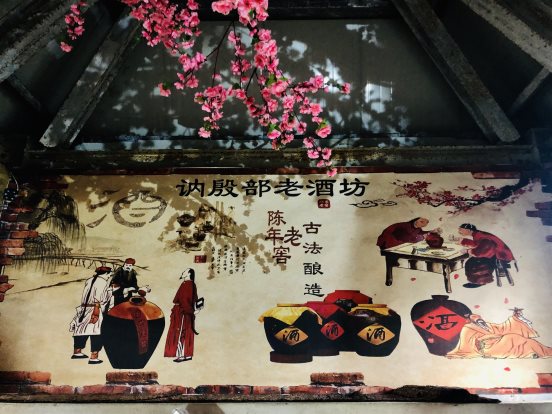 讷殷部老酒坊
陈年老窖
古法酿造
酒
酒
酒
酒